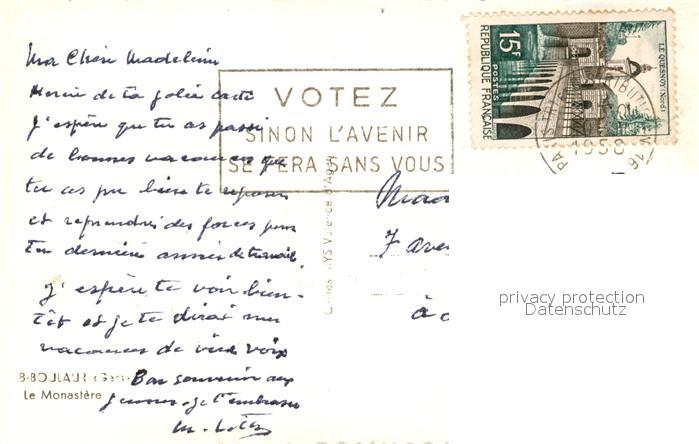 Ma Chère Madeleine
Merci de ta jolie carte
J'espère que tu as passé
de bonnes vacances que
tu as pu bien te reposer
et reprendre des forces pour
ta dernière année de travail
J'espère te voir bien-
tôt et je te dirai mes
vacances de vive voix
Bon souvenir aux
je t'embrasse
VOTEZ
SINON L'AVENIR
SE FERA SANS VOUS
15F
POSTES
REPUBLIQUE FRANÇAISE
LE QUESNOY (Nord)
PARIS
7 Aven
à
8-BOULAUR (Gers)
Le Monastère
privacy protection
Datenschutz